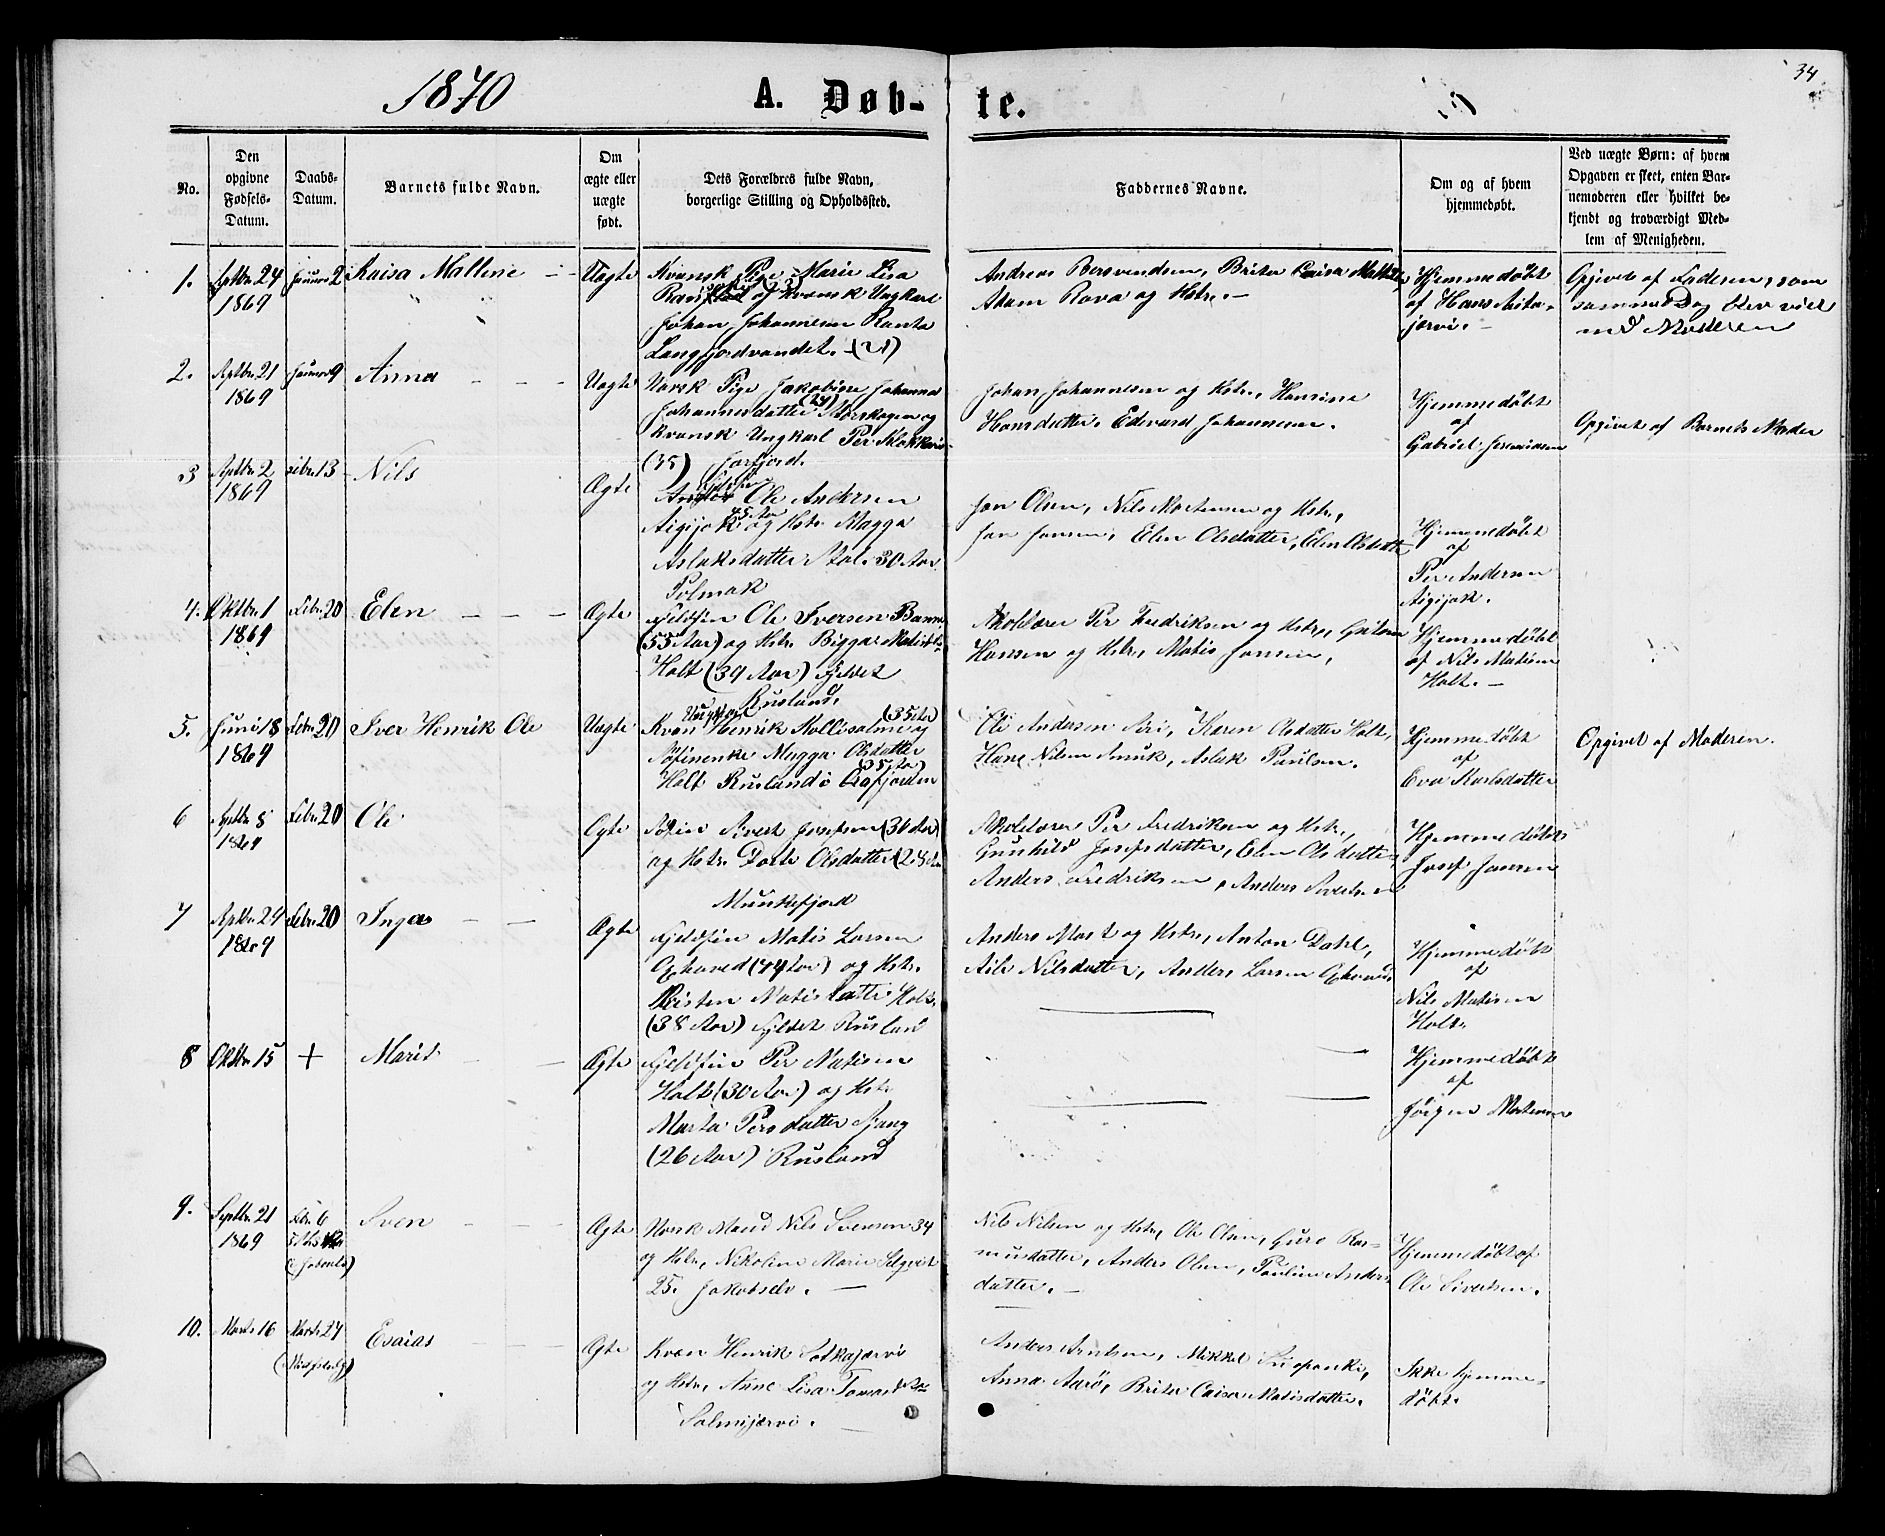 34
1870 A. Døb- te.
No.
Den opgivne Fødsels-Datum.
Daabs-Datum.
Barnets fulde Navn.
Om ægte eller uægte født.
Dets Forældres fulde Navn, borgerlige Stilling og Opholdssted.
Faddernes Navne.
Om og af hvem hjemmedøbt.
Ved uægte Børn: af hvem
Opgaven er skeet, enten Bar-
nemoderen eller hvilket be-
kjendt og troværdigt Med-
lem af Menigheden.
1. Sptbr 24 1869
Januar 2
Kaisa Malline
Uægte
Kvænsk Pige Marie Lisa
og Kvænsk Ungkarl
Johan Johannesen Ranta
Langfjordvandet. (21)
Andreas Bersvendsen, Brita Caisa
Adam Rova og Hstr.
Hjemmedøbt
af Hans
jærvi.
Opgivet af Faderen, som
samme Dag blev viet
med Moderen
2. Sptbr 21 1869
Januar 9
Anna
Uægte
Norsk Pige Jakobine Johanna
Johannesdatter (24) og
Kvænsk Ungkarl Per
(35) Jarfjord.
Johan Johannesen og Hstr., Hansine
Hansdatter. Edevard Johannesen.
Hjemmedøbt
af
Gabriel
Opgivet af Barnets Moder
3 Sptbr 2 1869
13
Nils
Ægte
Ole Andersen
og Hstr. Magga
Aslaksdatter 30 Aar
Polmak
Jon Olsen, Nils Mortensen og Hstr.,
Jon Jonsen, Elen Olsdatter, Elen Olsdatter
Hjemmedøbt
af
Per Andersen
4. Oktbr 1 1869
Febr 20
Elen
Ægte
Fjeldfin Ole Iversen
(55 Aar) og Hstr. Bigga
Holt (39 Aar) Fjeldet
Rusland.
Skolelærer Per Fredriksen og Hstr.,
Hansen og Hstr., Matis Jonsen,
Hjemmedøbt
af Nils Matisen
Holt.
5. Juni 18 1869
Febr 20
Iver Henrik Ole
Uægte
Kvæn Henrik (35 Aar)
Søfinenke Magga Olsdatter
Holt Rusland (35 Aar)
Ole Andersen, Karen Olsdatter Holt,
Hans Nilsen, Aslak Paulsen.
Hjemmedøbt
af
Eva Karlsdatter
Opgivet af Moderen.
6 Sptbr 8 1869
Febr 20
Ole
Ægte
Søfin Sivert Josefsen (36 Aar)
og Hstr. Dorte Olsdatter (28 Aar)
Munkefjord
Skolelærer Per Fredriksen og Hstr.,
Gunhild Josefsdatter, Elen Olsdatter
Anders Fredriksen, Anders Sivertsen
Hjemmedøbt
Josef Jonsen
7 Sptbr 24 1869
Febr 20
Inga
Ægte
Fjeldfin Matis Larsen
(44 Aar) og Hstr.
Kristen Matisdatter Holt
(38 Aar) Fjeldet Rusland
Anders og Hstr., Anton Dahl,
Nilsdatter, Anders Larsen
Hjemmedøbt
af
Nils Matisen
Holt.
8 Oktbr 15
+
Marit
Ægte
Fjeldfin Per Matisen
Holt (30 Aar) og Hstr.
Marta Persdatter
(26 Aar) Rusland
Hjemmedøbt
af
Jørgen Mortensen
9. Septbr. 21 1869
Febr. 6
Sven
Ægte
Norsk Mand Nils Svensen 34
og Hstr. Nikoline Marie
25. Jakobselv.
Nils Nilsen og Hstr., Ole Olsen, Guro Ras-
musdatter, Anders Olsen, Pauline Anders-
datter.
Hjemmedøbt af
Ole Sivertsen.
10. Marts 16
Marts 27
Esaias
Ægte
Kvæn Henrik
og Hstr., Anne Lisa
Salmijærvi.
Anders, Mikkel
Anna, Brita Caisa Matisdatter.
Ikke hjemme-
døbt.